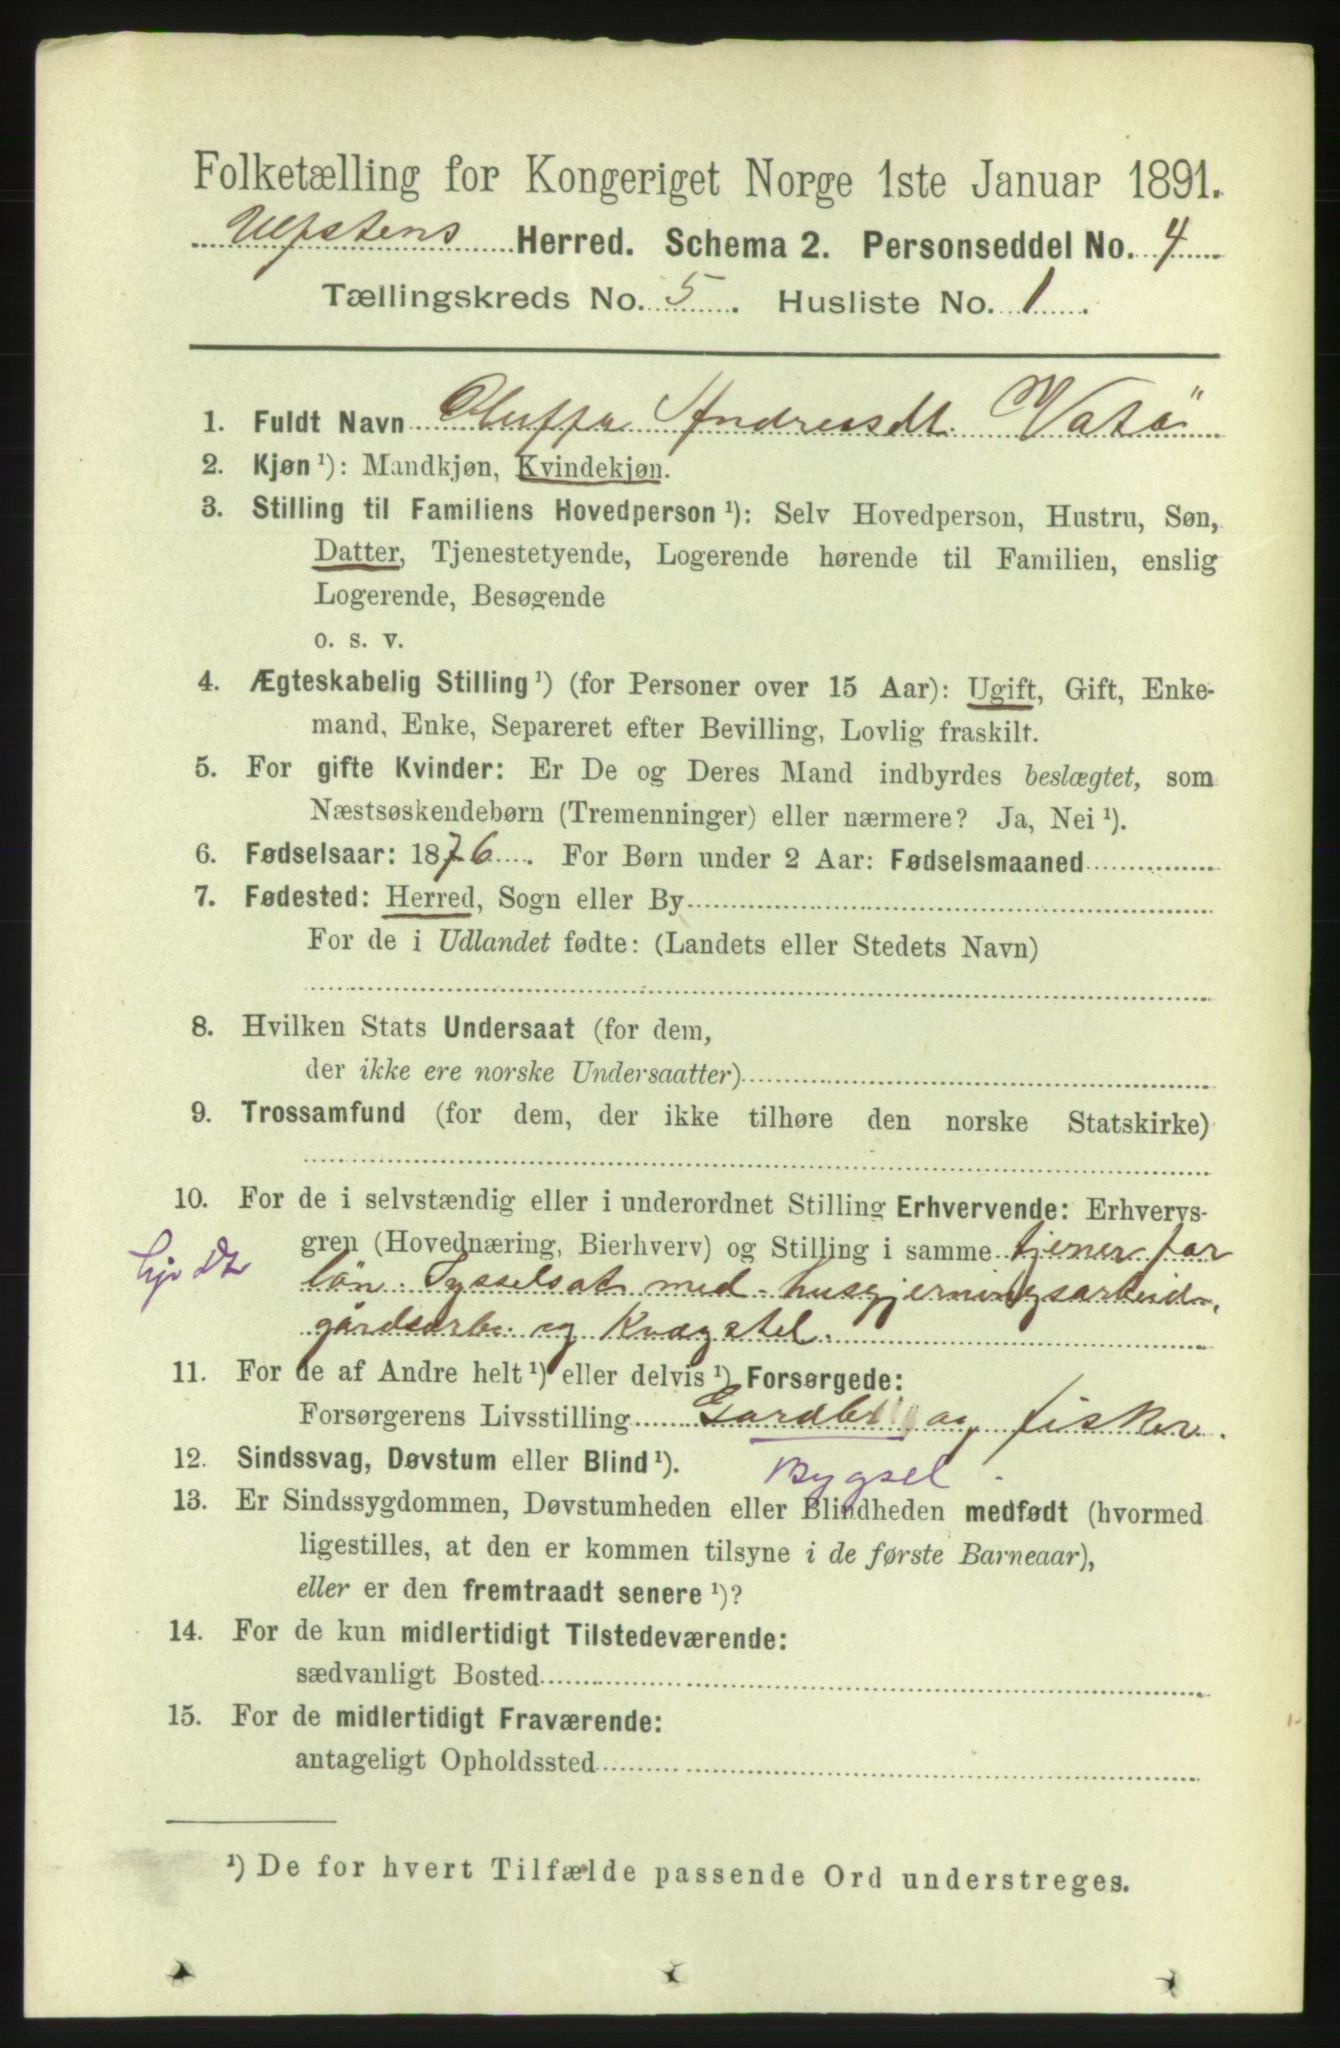 Folketælling for Kongeriget Norge 1ste Januar 1891.
Ulfstens Herred. Schema 2. Personseddel No. 4
Tællingskreds No. 5. Husliste No. 1.
1. Fuldt Navn Oluffa Andreasdt. Vatö
2. Kjøn ¹): Mandkjøn, Kvindekjøn.
3. Stilling til Familiens Hovedperson ¹): Selv Hovedperson, Hustru, Søn,
Datter, Tjenestetyende, Logerende hørende til Familien, enslig
Logerende, Besøgende
o. s. v.
4. Ægteskabelig Stilling ¹) (for Personer over 15 Aar): Ugift, Gift, Enke-
mand, Enke, Separeret efter Bevilling, Lovlig fraskilt.
5. For gifte Kvinder: Er De og Deres Mand indbyrdes beslægtet, som
Næstsøskendebørn (Tremenninger) eller nærmere? Ja, Nei ¹).
6. Fødselsaar: 1876. For Børn under 2 Aar: Fødselsmaaned
7. Fødested: Herred, Sogn eller By
For de i Udlandet fødte: (Landets eller Stedets Navn)
8. Hvilken Stats Undersaat (for dem,
der ikke ere norske Undersaatter)
9. Trossamfund (for dem, der ikke tilhøre den norske Statskirke)
10. For de i selvstændig eller i underordnet Stilling Erhvervende: Erhvervs-
gren (Hovednæring, Bierhverv) og Stilling i samme tjener for
lön. Sysselsat med husgjerningsarbeid,
gårdsarb. og Kvægstel.
11. For de af Andre helt ¹) eller delvis ¹) Forsørgede:
Forsørgerens Livsstilling Gardbr. og fisker.
Bygsel
12. Sindssvag, Døvstum eller Blind ¹).
13. Er Sindssygdommen, Døvstumheden eller Blindheden medfødt (hvormed
ligestilles, at den er kommen tilsyne i de første Barneaar),
eller er den fremtraadt senere ¹)?
14. For de kun midlertidigt Tilstedeværende:
sædvanligt Bosted
15. For de midlertidigt Fraværende:
antageligt Opholdssted
¹) De for hvert Tilfælde passende Ord understreges.